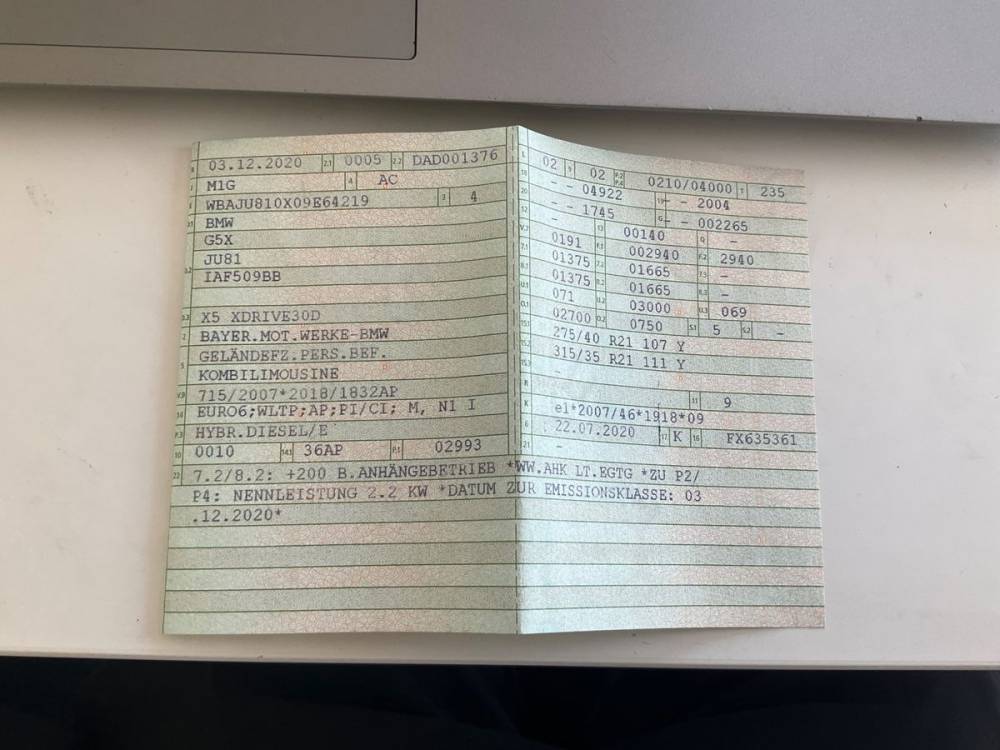 03.12.2020 2.1 0005 2.2 DAD001376
J M1G 4 AC
E WBAJU810X09E64219 3 4
D.1 BMW
G5X
D.2 JU81
IAF509BB
D.3 X5 XDRIVE30D
2 BAYER.MOT.WERKE-BMW
5 GELÄNDEFZ.PERS.BEF.
KOMBILIMOUSINE
V.9 715/2007*2018/1832AP
14 EURO6;WLTP;AP;PI/CI; M, N1 I
P.3 HYBR.DIESEL/E
10 0010 14.1 36AP P.1 02993
22 7.2/8.2: +200 B.ANHÄNGEBETRIEB *WW.AHK LT.EGTG *ZU P2/
P4: NENNLEISTUNG 2.2 KW *DATUM ZUR EMISSIONSKLASSE: 03
.12.2020*
L 02 9 02 P.2 P.4 0210/04000 T 235
18 - - 04922 19 - - 2004
20 - - 1745 G - - 002265
12 - 13 00140 Q -
V.7 0191 F.1 002940 F.2 2940
7.1 01375 7.2 01665 7.3 -
8.1 01375 8.2 01665 8.3 -
U.1 071 U.2 03000 U.3 069
O.1 02700 O.2 0750 S.1 5 S.2 -
15.1 275/40 R21 107 Y
15.2 315/35 R21 111 Y
15.3 -
R 11 9
K e1*2007/46*1918*09
6 22.07.2020 17 K 16 FX635361
21 -